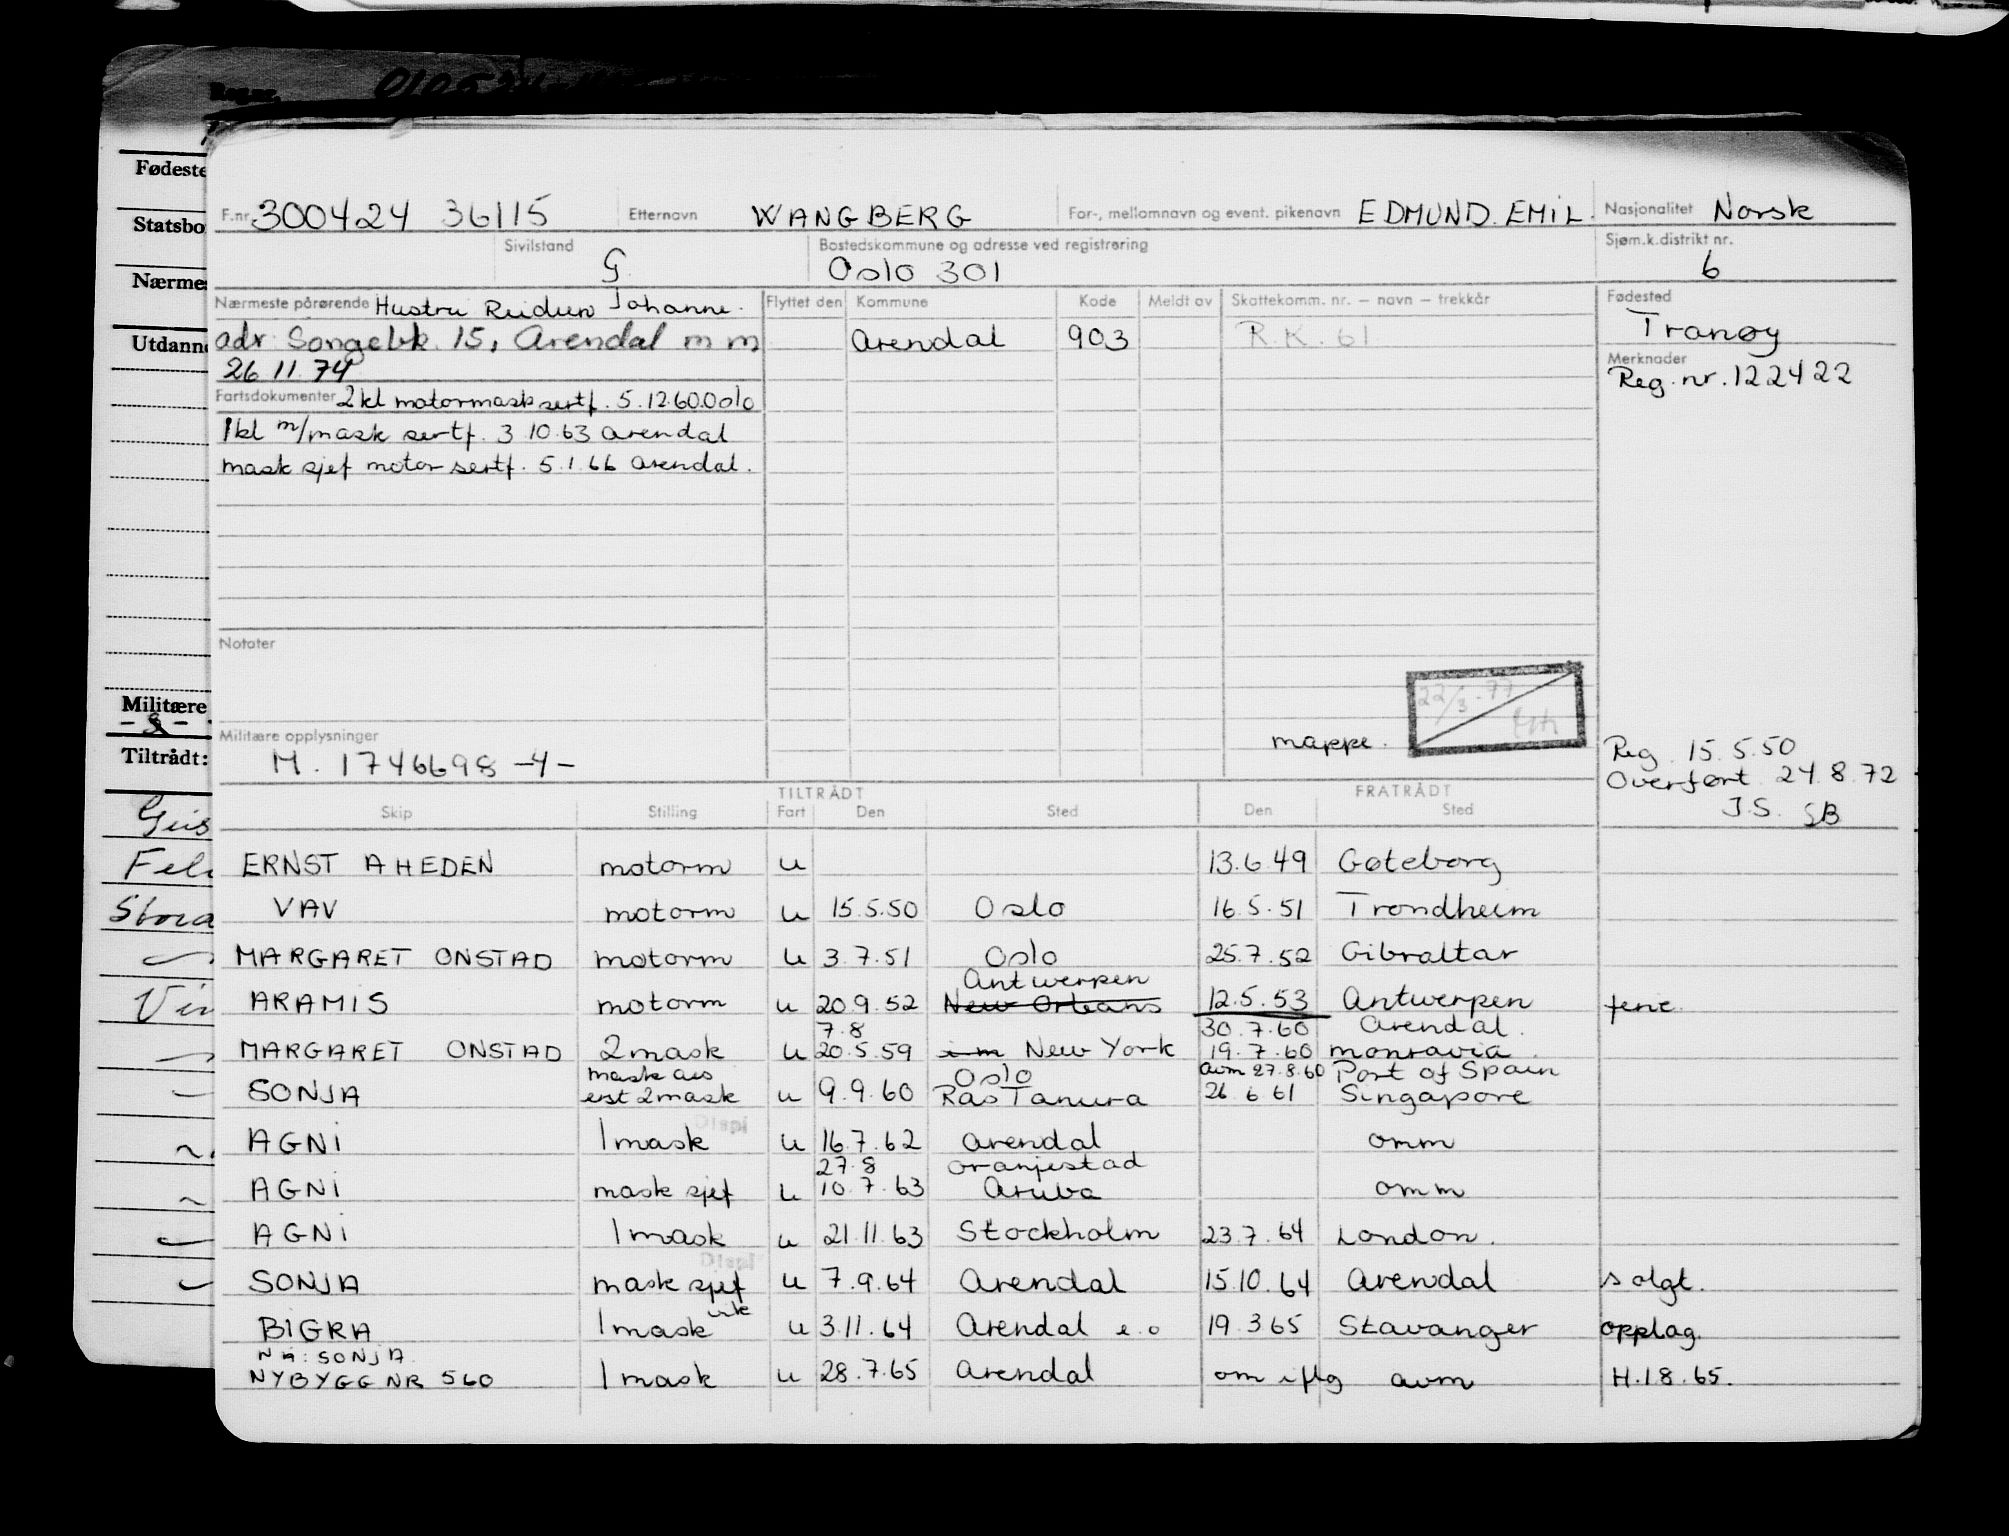 Fødeste
Statsbo
Nærmes
Utdann
Militære
Tiltrådt:
F.nr. 300424 36115 Etternavn WANGBERG For-, mellomnavn og event. pikenavn EDMUND. EMIL. Nasjonalitet Norsk
Sivilstand G. Bostedskommune og adresse ved registrering Oslo 301 Sjøm.k.distrikt nr. 6
Nærmeste pårørende Hustru Reidun Johanne. Flyttet den Kommune Kode Meldt av Skattekomm. nr. — navn — trekkår Fødested
adr Songebk 15, Arendal m m Arendal 903 R.K. 61 Tranøy
26 11. 74 Merknader
Reg. nr. 122422
Fartsdokumenter 2kl motormask sertf. 5.12.60 Oslo
1kl m/mask sertf. 3 10.63 Arendal
mask sjef motor sertf. 5.1.66 Arendal.
Notater
22/3-77
mappe.
Militære opplysninger
M. 1746698 -4-
Reg. 15.5.50
Overført 24.8.72
J.S. SB
TILTRÅDT FRATRÅDT
Skip Stilling Fart Den Sted Den Sted
ERNST A HEDEN motorm u 13.6.49 Gøteborg
VAV motorm u 15.5.50 Oslo 16.5.51 Trondheim
MARGARET ONSTAD motorm u 3.7.51 Oslo 25.7.52 Gibraltar
Antwerpen
ARAMIS motorm u 20.9.52 New Orleans 12.5.53 Antwerpen ferie.
7.8 30.7.60 Arendal.
MARGARET ONSTAD 2mask u 20.5.59 i m New York 19.7.60 monravia.
mask ass Oslo avm 27.8.60 Port of Spain
SONJA erst 2mask u 9.9.60 Ras Tanura 26.6 61 Singapore
Displ
AGNI 1mask u 16.7.62 Arendal omm
27.8 Oranjestad
AGNI mask sjef u 10.7.63 Aruba omm
AGNI 1mask u 21.11.63 Stockholm 23.7.64 London.
Displ
SONJA mask sjef u 7.9.64 Arendal 15.10.64 Arendal solgt.
BIGRA 1mask u 3.11.64 Arendal e.o 19.3 65 Stavanger opplag.
Nå: SONJA
NYBYGG NR 560 1mask u 28.7.65 Arendal om iflg avm H.1 8.65.